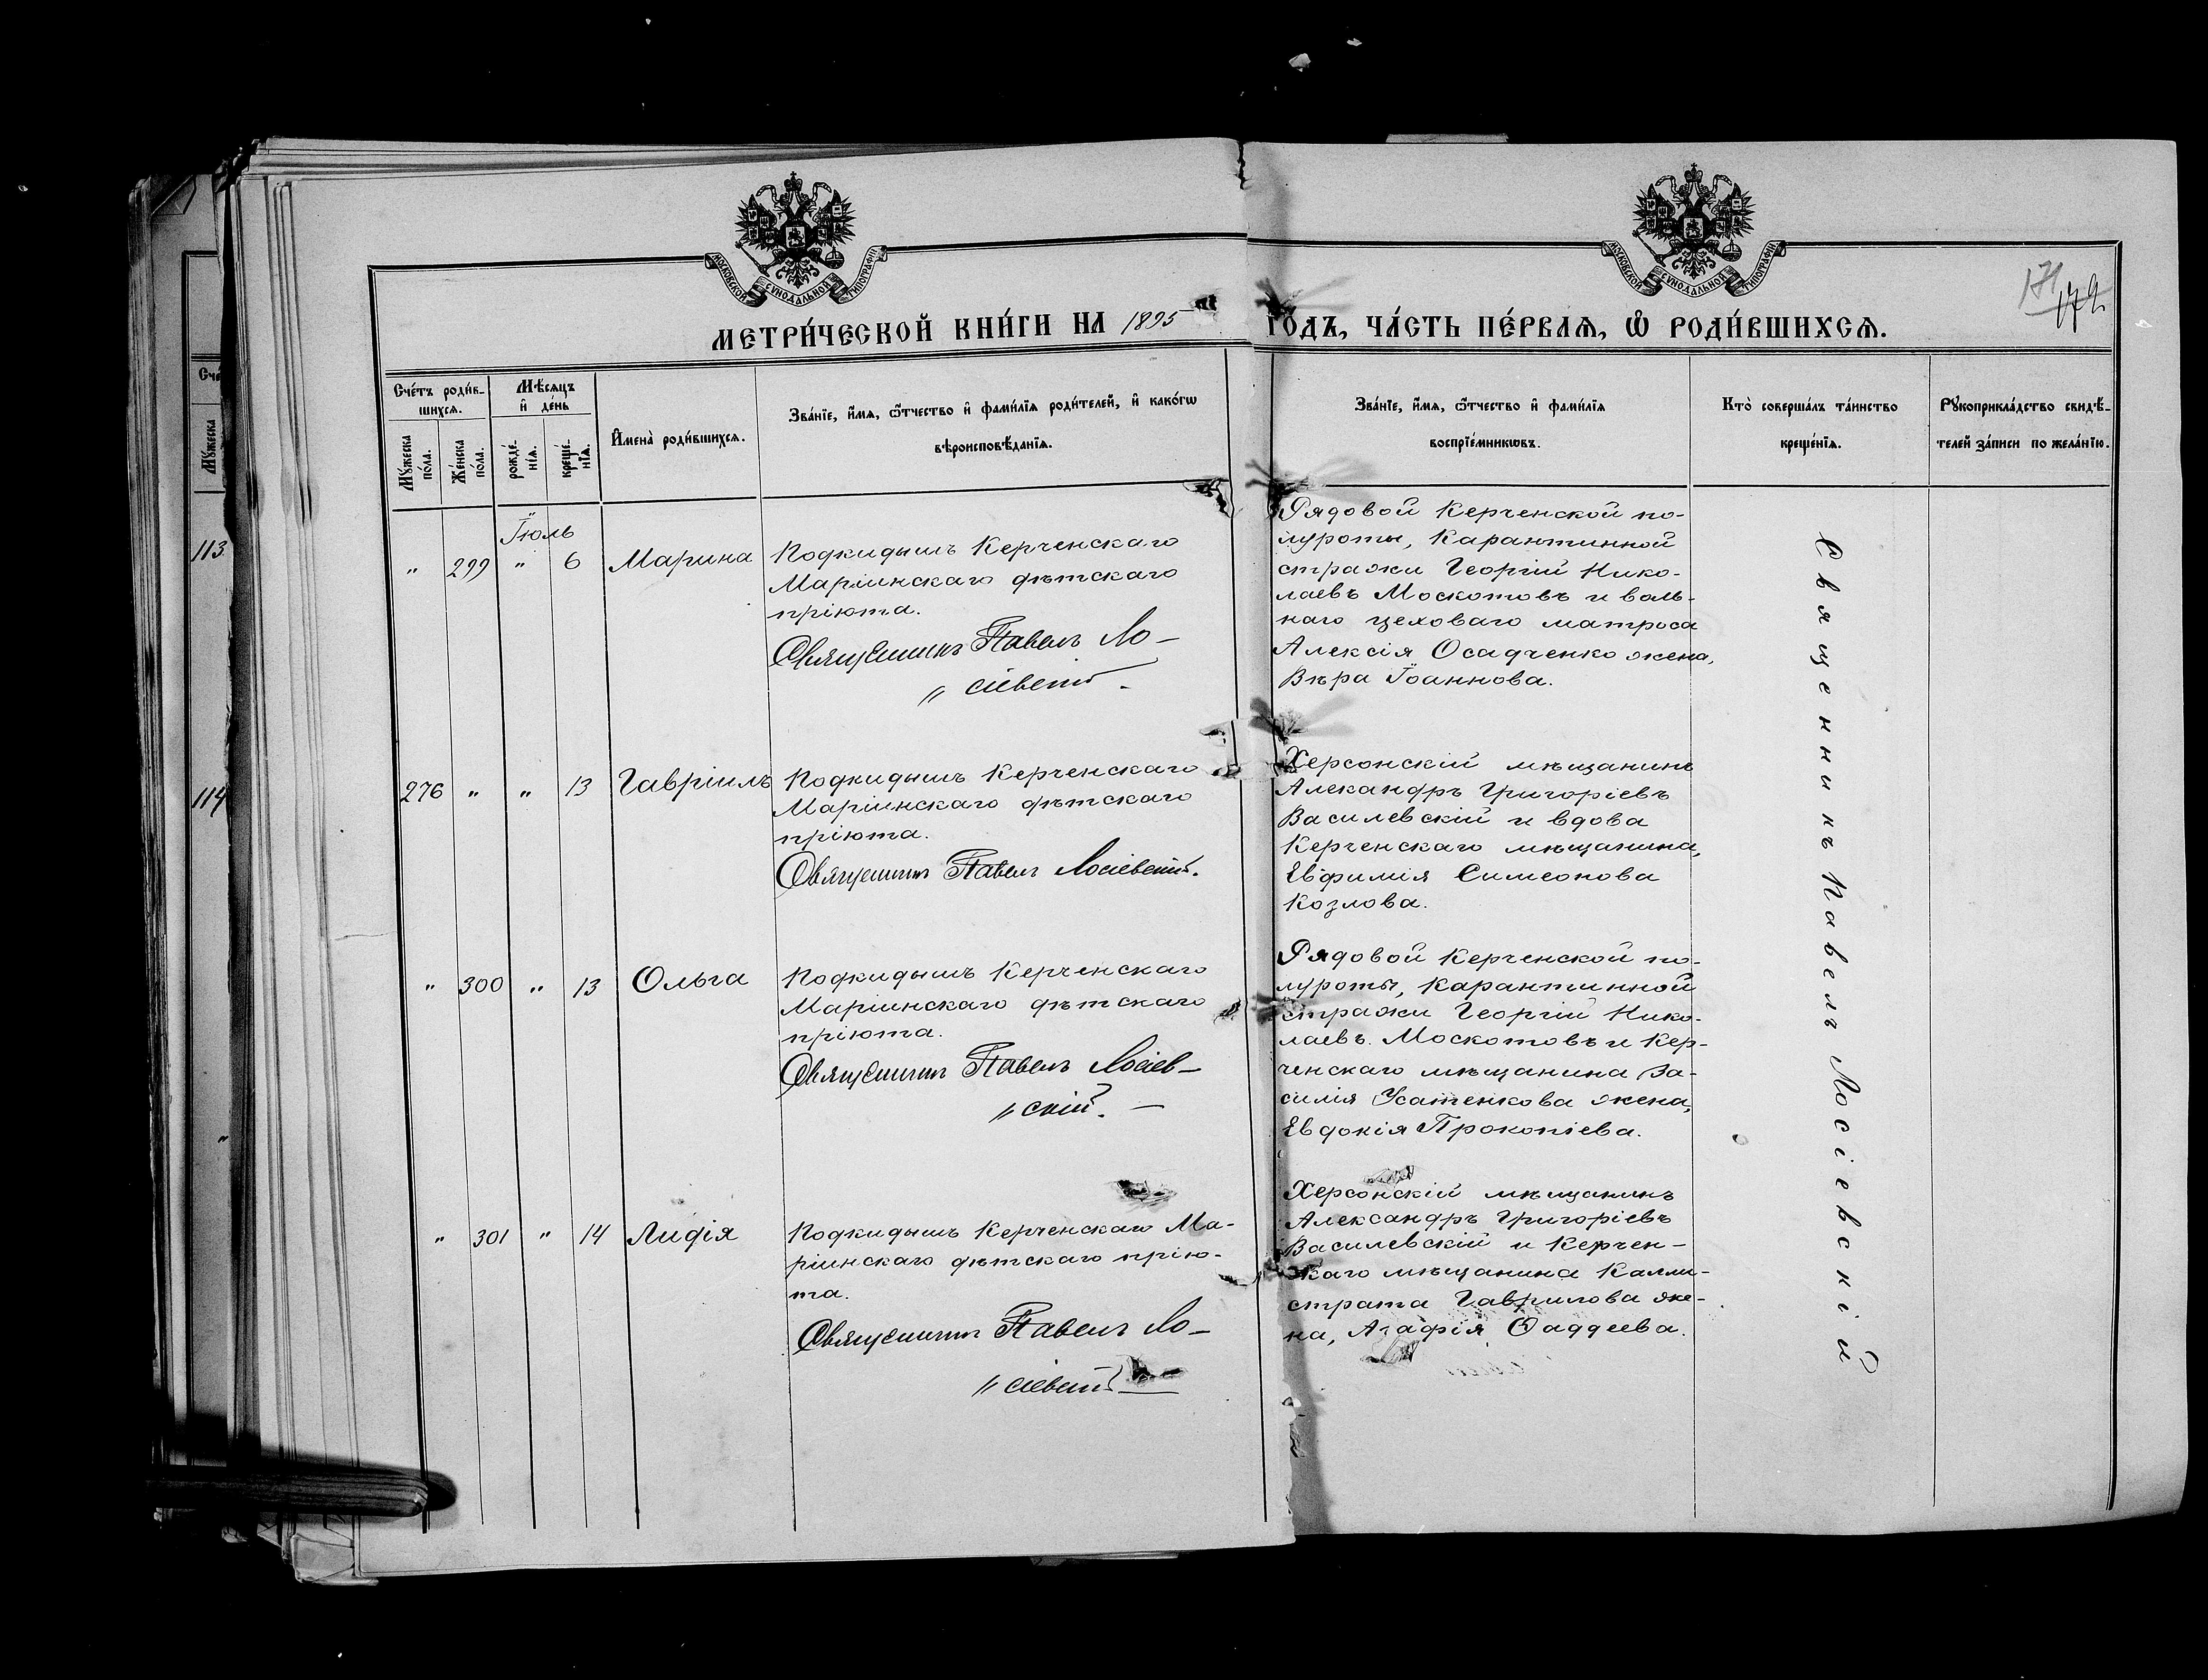 МОСКОВСКОЙ СѴНОДАЛЬНОЙ ТИПОГРАФІИ
МОСКОВСКОЙ СѴНОДАЛЬНОЙ ТИПОГРАФІИ
171
172
МЕТРИ́ЧЕСКОЙ КНИ́ГИ НА 1895 ГО́ДЪ, ЧА́СТЬ ПЕ́РВАѦ, Ѽ РОДИ́ВШИХСѦ.
Сче́тъ роди́в-
шихсѧ.
Мꙋжеска
по́ла.
Же́нска
по́ла.
Мѣ́сѧцъ
и҆ де́нь
рожде́-
нїѧ.
креще́-
нїѧ.
И҆мена̀ роди́вшихсѧ.
Зва́нїе, и҆́мѧ, ѻ҆́тчество и҆ фами́лїѧ роди́телей, и҆ како́гѡ
вѣроисповѣ́данїѧ.
Зва́нїе, и҆́мѧ, ѻ҆́тчество и҆ фами́лїѧ
воспрїе́мникѡвъ.
Кто̀ соверша́лъ та́инство
креще́нїѧ.
Рꙋкоприкла́дство свидѣ́-
телей за́писи по жела́нїю.
Мꙋжеска
113
114
Іюль
" 299 " 6 Марина
Подкидышъ Керченскаго
Маріинскаго дѣтскаго
пріюта.
Священникъ Павелъ Ло-
"сіевскій.
Рядовой Керченской по-
луроты, Карантинной
стражи Георгій Нико-
лаевъ Москотовъ и воль-
наго цеховаго матроса
Алексія Осадченко жена,
Вѣра Іоаннова.
276 " " 13 Гавріилъ
Подкидышъ Керченскаго
Маріинскаго дѣтскаго
пріюта.
Священникъ Павелъ Лосіевскій.
Херсонскій мѣщанинъ
Алекандръ Григоріевъ
Василевскій и вдова
Керченскаго мѣщанина,
Евфимія Симеонова
Козлова.
" 300 " 13 Ольга
Подкидышъ Керченскаго
Маріинскаго дѣтскаго
пріюта.
Священникъ Павелъ Лосіев-
"скій. -
Рядовой Керченской по-
луроты, Карантинной
стражи Георгій Нико-
лаевъ Москотовъ и Кер-
ченскаго мѣщанина Ва-
силія Усатенкова жена,
Евдокія Прокопіева.
" 301 " 14 Лидія
Подкидышъ Керченскаго Ма-
ріинскаго дѣтскаго прію-
та.
Священникъ Павелъ Ло-
"сіевскій
Херсонскій мѣщанинъ
Александръ Григоріевъ
Василевскій и Керчен-
скаго мѣщанина Калли-
страта Гаврилова же-
на, Агафія Ѳаддеева.
Священникъ Павелъ Лосіевскій